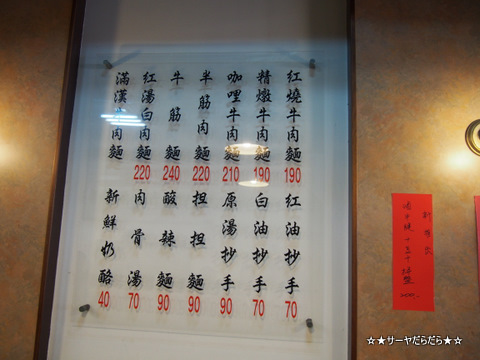 紅燒牛肉麵 190
精燉牛肉麵 190
咖哩牛肉麵 210
半筋肉麵 220
牛筋麵 240
紅湯白肉麵 220
滿漢牛肉麵
紅油抄手 70
白油抄手 70
原湯抄手 90
担担麵 90
酸辣麵 90
肉骨湯 70
新鮮奶酪 40
☆★サーヤだらだら★☆